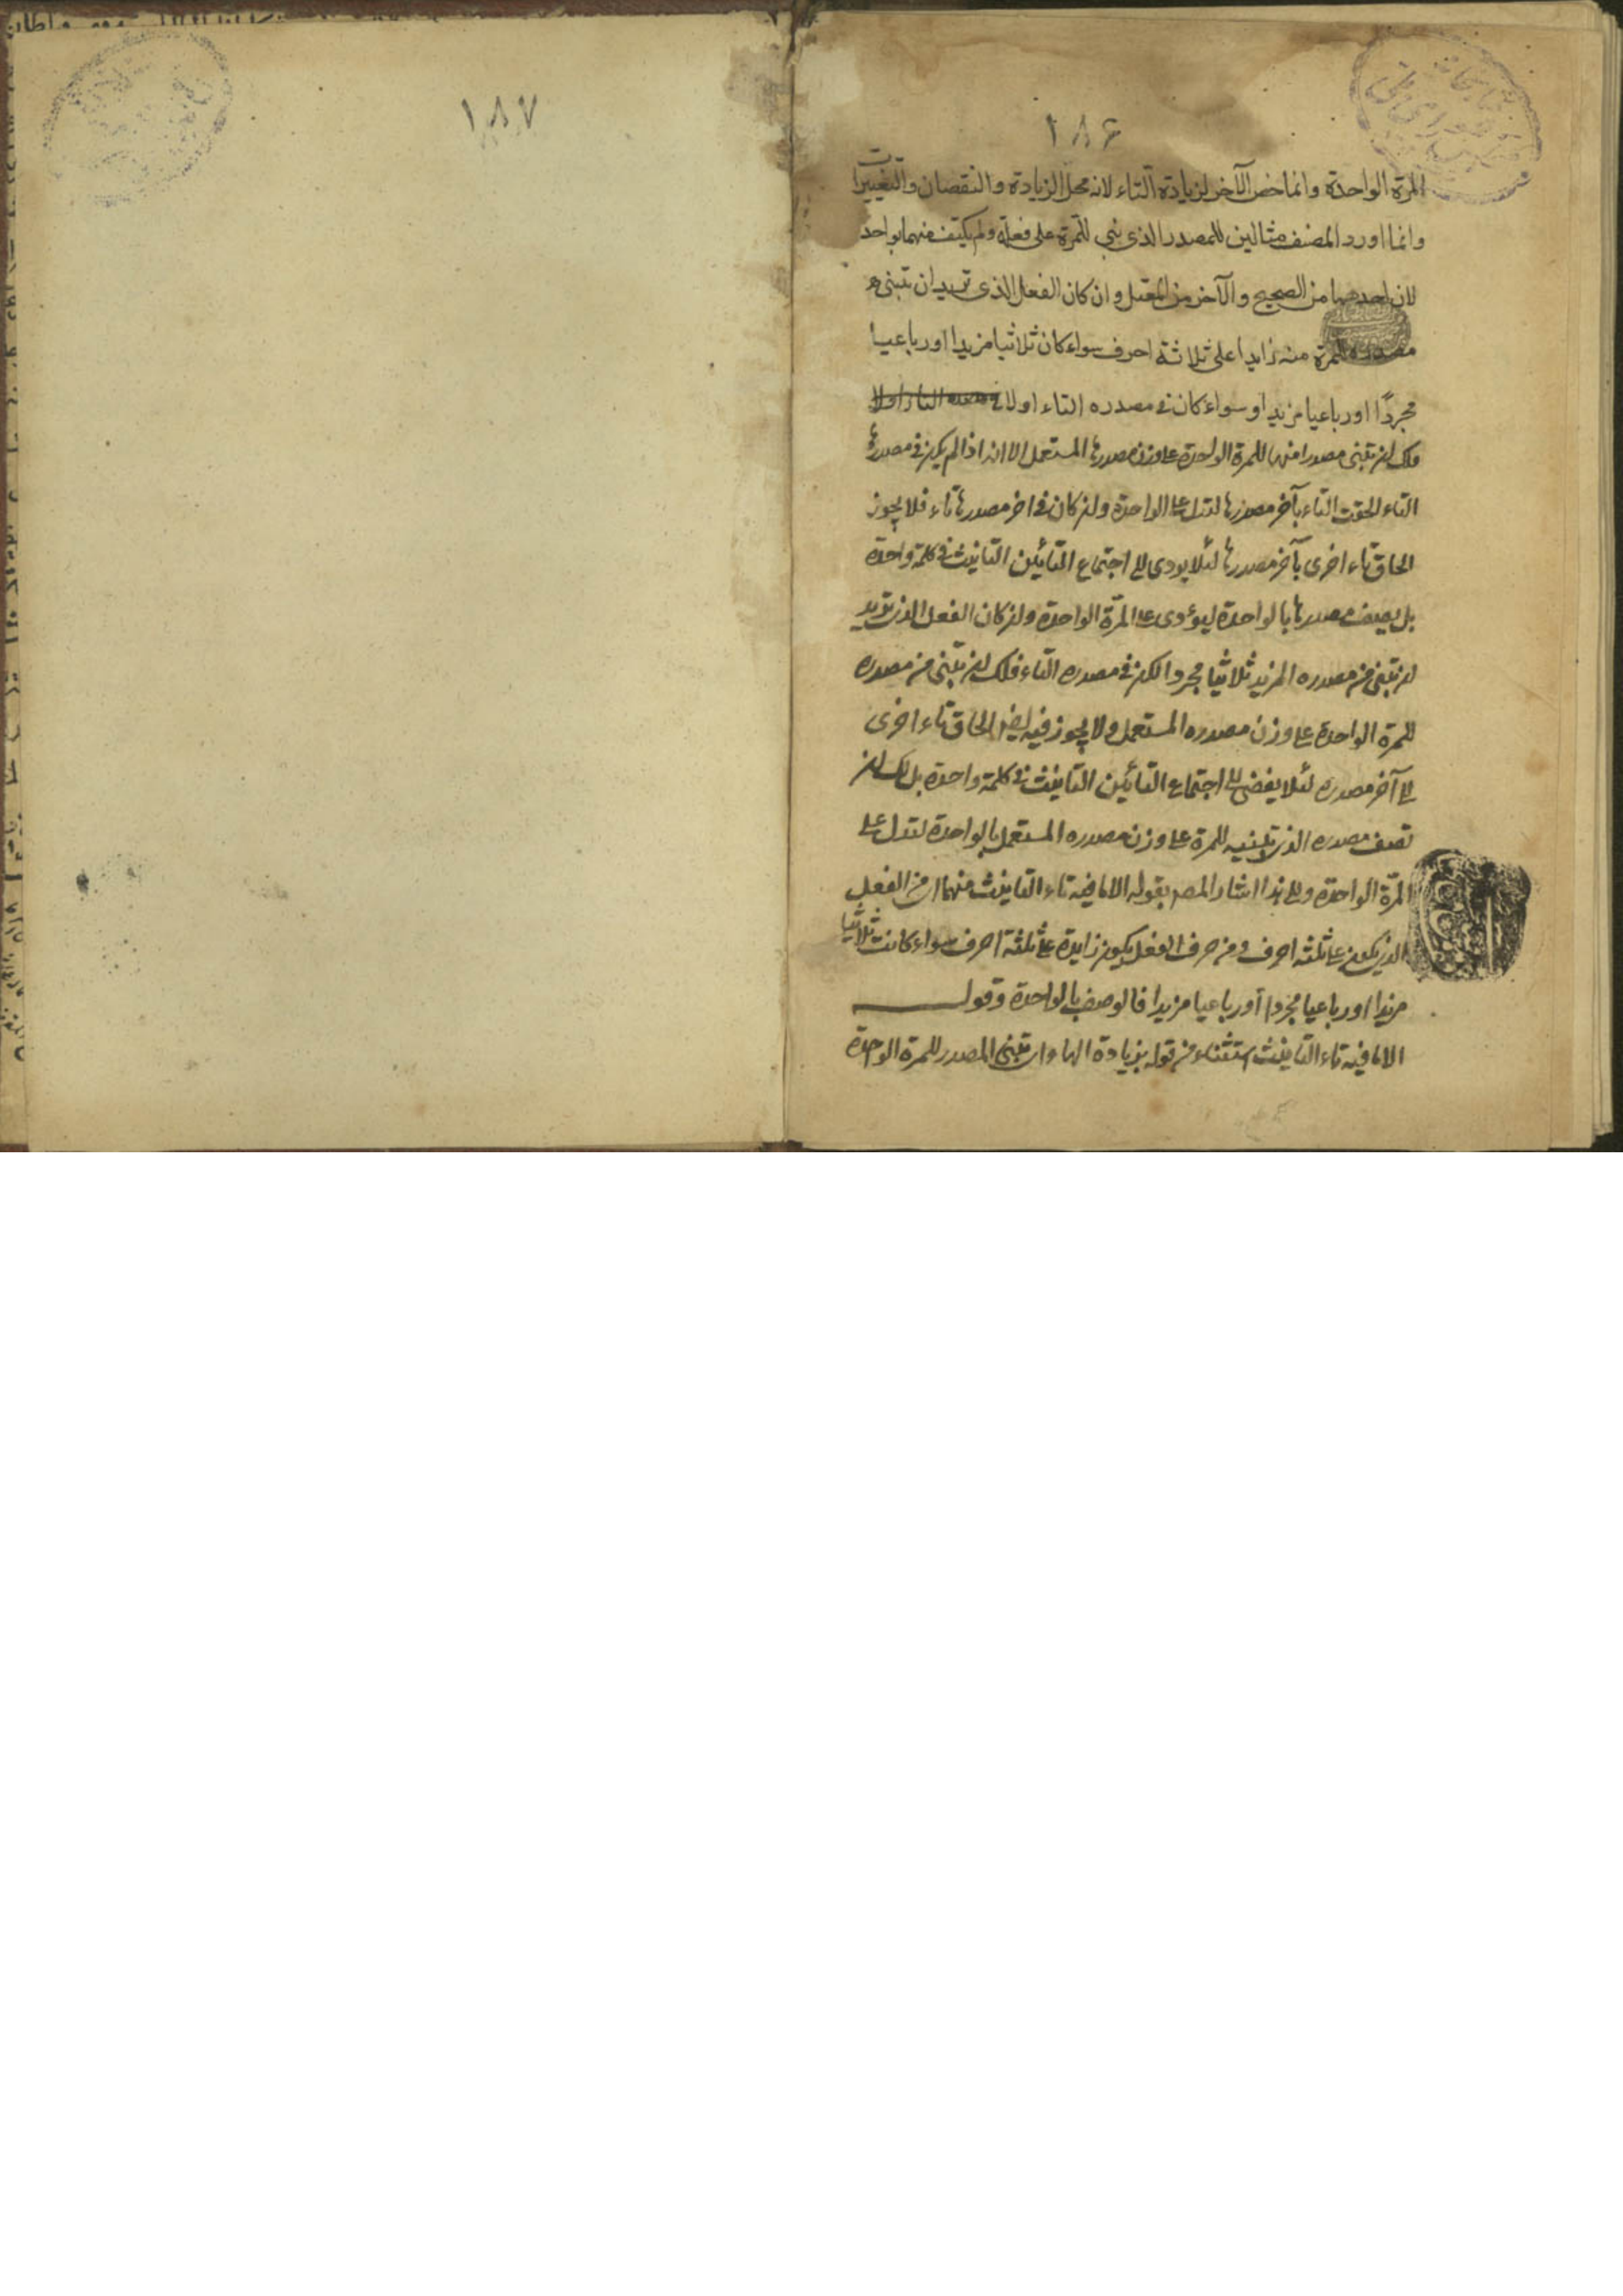 ١٨۶
المرة الواحدة وانما خص الآخر لزيادة التاء لانه محل الزيادة والنقصان والتغييرات
وانما اورد المصنف مثالين للمصدر الذى بنى للمرة على فعلة ولم يكتف منهما بواحد
لان احدهما من الصحيح والآخر من المعتل وان كان الفعل الذى تريد ان تبنى
مصدره للمرة منه زايدا على ثلاثة احرف سواء كان ثلاثيا مزيدا او رباعيا
مجردًا او رباعيا مزيدا و سواء كان فى مصدره التاء اولا
فلك ان تبنى مصدرا منها للمرة الواحدة على وزن مصدرها المستعمل الا انه اذا لم يكن فى مصدرها
التاء الحقت التاء بآخر مصدرها لتدل على الواحدة وان كان فى اخر مصدرها تاء فلا يجوز
الحاق تاء اخرى بآخر مصدرها لئلا يودى الى اجتماع التائين التانيث فى كلمة واحدة
بل يصف مصدرها بالواحدة ليؤدى على المرّة الواحدة وان كان الفعل الذى تريد
ان تبنى من مصدره المزيد ثلاثيا مجردا لكن فى مصدره التاء فلك ان تبنى من مصدره
للمرة الواحدة على وزن مصدره المستعمل ولا يجوز فيه ايضا الحاق تاء اخرى
الى آخر مصدره لئلا يفضى الى اجتماع التائين التانيث فى كلمة واحدة بل لك ان
تصف مصدره الذى تبنيه للمرة على وزن مصدره المستعمل بالواحدة لتدل على
المرّة الواحدة والى هذا اشار المصـ بقوله الا ما فيه تاء التانيث منهما اى من الفعل
الذى يكون على ثلثة احرف ومن حرف الفعل يكون زايدة على ثلثة احرف سواء كانت ثلاثيا
مزيدا او رباعيا مجردا أو رباعيا مزيدا فالوصف بالواحدة وقولـه
الا ما فيه تاء التانيث استثناء من قوله بزيادة الهاء اى تبنى المصدر للمرة الواحدة
١٨٧